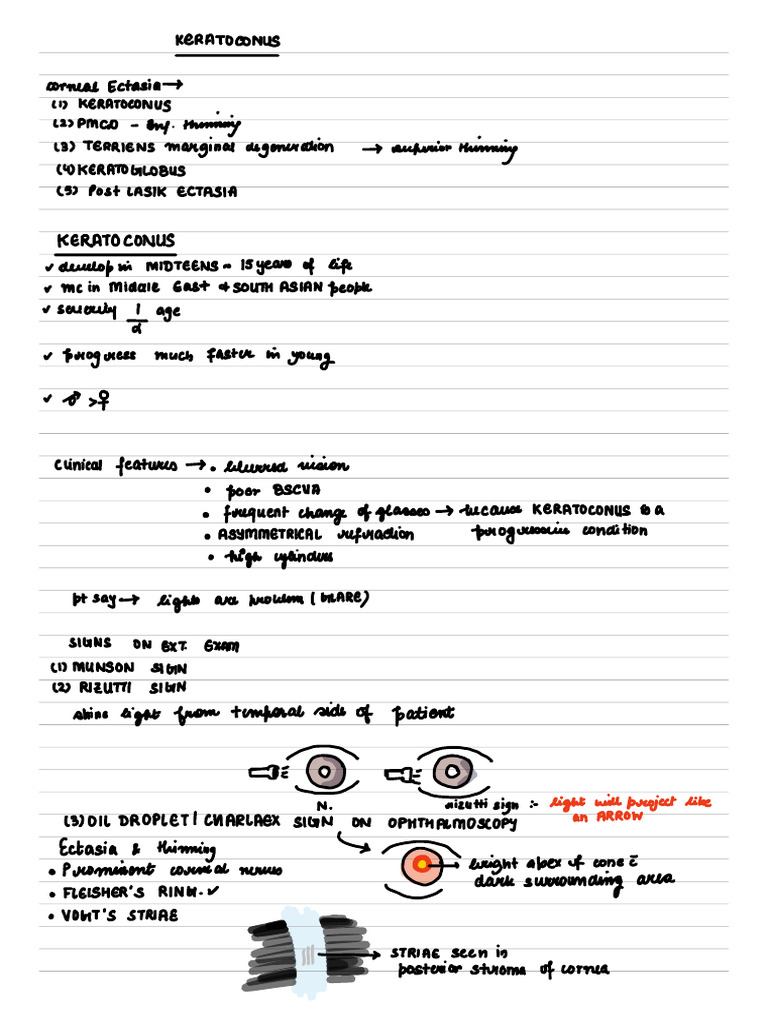 KERATOCONUS
corneal Ectasia →
(1) KERATOCONUS
(2) PMCD - Inf. thinning
(3) TERRIENS marginal degeneration → superior thinning
(4) KERATOGLOBUS
(5) Post LASIK ECTASIA
KERATOCONUS
✓ develop in MIDTEENS ~ 15 years of life
✓ mc in Middle East & SOUTH ASIAN people
✓ severity 1/α age
✓ progress much faster in young
✓ ♂ > ♀
Clinical features → • blurred vision
• poor BSCVA
• frequent change of glasses → because KERATOCONUS is a
progressive condition
• ASYMMETRICAL refraction
• high cylinders
pt say → lights are problem (GLARE)
SIGNS ON EXT. EXAM
(1) MUNSON SIGN
(2) RIZUTTI SIGN
shine light from temporal side of patient
N.
rizutti sign :- light will project like
an ARROW
(3) OIL DROPLET / CHARLAEX SIGN ON OPHTHALMOSCOPY
Ectasia & thinning
• Prominent corneal nerves
• FLEISHER'S RING. ✓
• VOGT'S STRIAE
→ bright apex of cone c̄
dark surrounding area
→ STRIAE seen in
posterior stroma of cornea